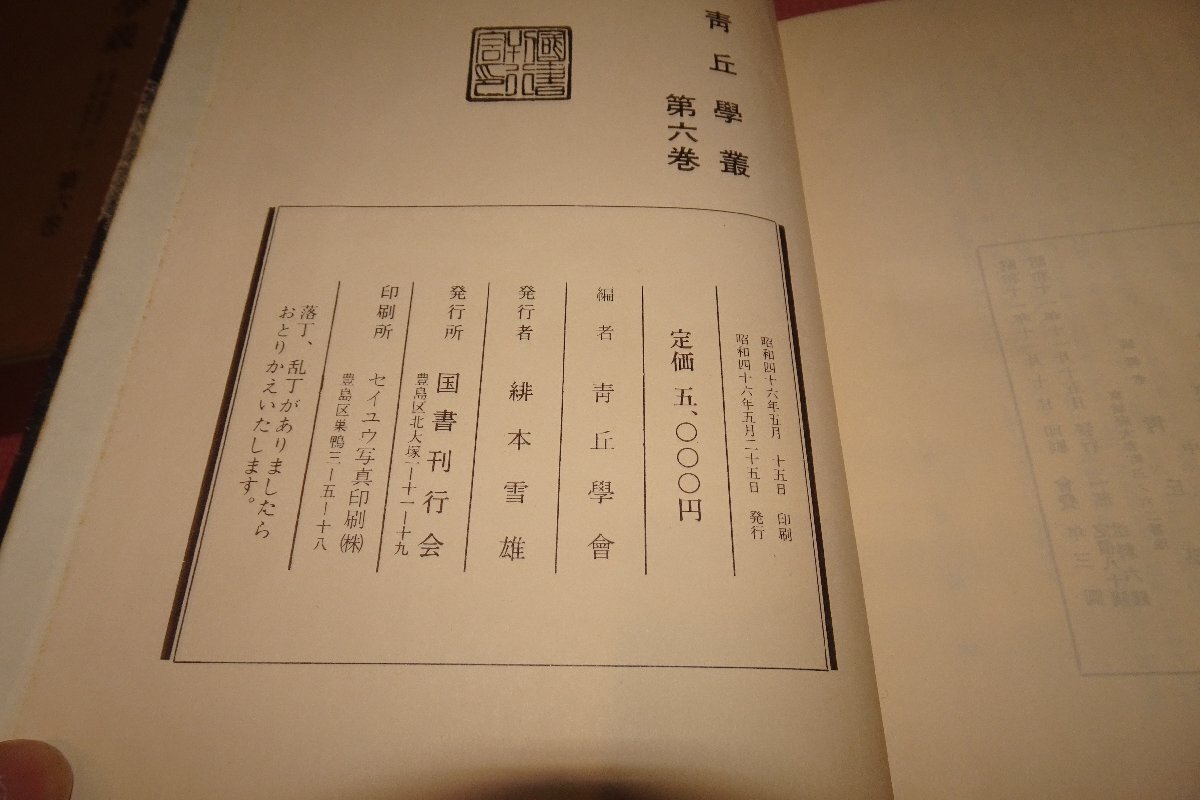 靑丘學叢
第六巻
昭和四十六年五月 十五日 印刷
昭和四十六年五月二十五日 発行
定価 五、〇〇〇円
編者 靑丘學會
発行者 緋本雪雄
発行所 国書刊行会
豊島区北大塚一ー十一ー十九
印刷所 セイユウ写真印刷(株)
豊島区巣鴨三ー五ー十八
落丁、乱丁がありましたら
おとりかえいたします。